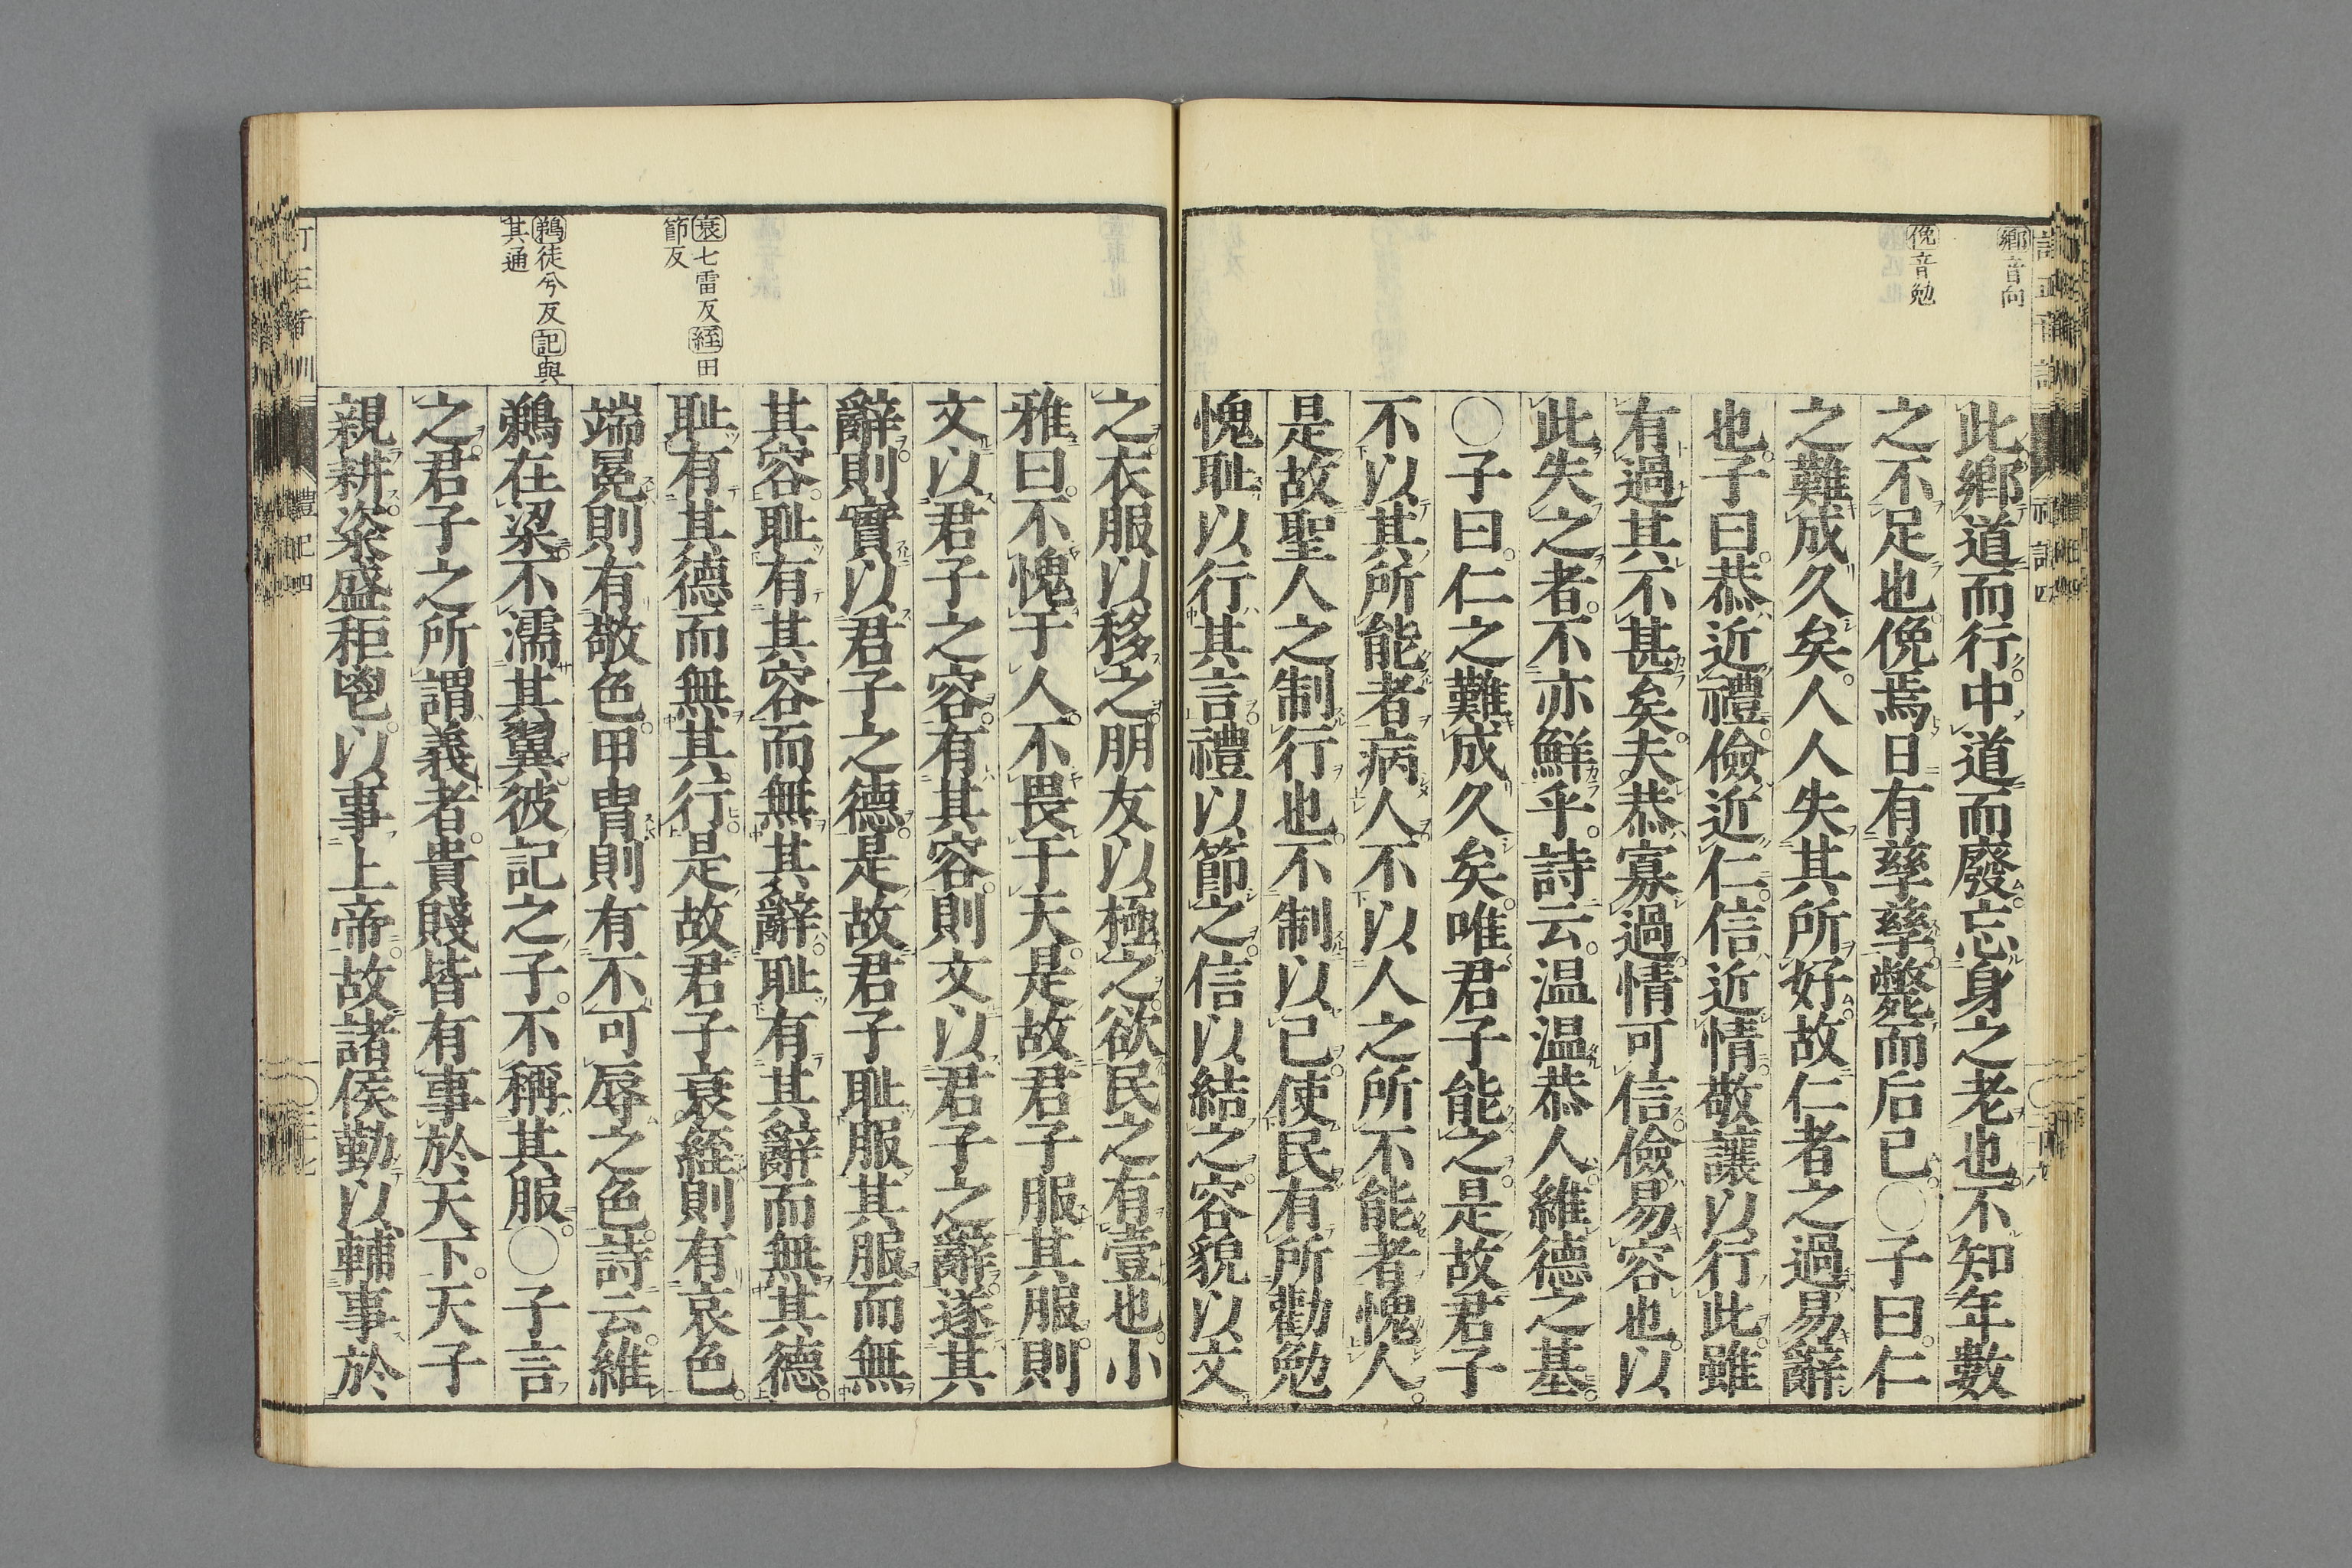 鄕音向
俛音勉
此鄕道而行中道而廢忘身之老也不知年數
之不足也俛焉日有孳孳斃而后已○子曰仁
之難成久矣人人失其所好故仁者之過易辭
也子曰恭近禮儉近仁信近情敬讓以行此雖
有過其不甚矣夫恭寡過情可信儉易容也以
此失之者不亦鮮乎詩云温温恭人維德之基
○子曰仁之難成久矣唯君子能之是故君子
不以其所能者病人不以人之所不能者愧人
是故聖人之制行也不制以己使民有所勸勉
愧耻以行其言禮以節之信以結之容貌以文
衰七雷反絰田
節反
鵜徒兮反記與
其通
之衣服以移之朋友以極之欲民之有壹也小
雅曰不愧于人不畏于天是故君子服其服則
文以君子之容有其容則文以君子之辭遂其
辭則實以君子之德是故君子耻服其服而無
其容耻有其容而無其辭耻有其辭而無其德
耻有其德而無其行是故君子衰絰則有哀色
端冕則有敬色甲冑則有不可辱之色詩云維
鵜在梁不濡其翼彼記之子不稱其服○子言
之君子之所謂義者貴賤皆有事於天下天子
親耕粢盛秬鬯以事上帝故諸侯勤以輔事於
禮記四